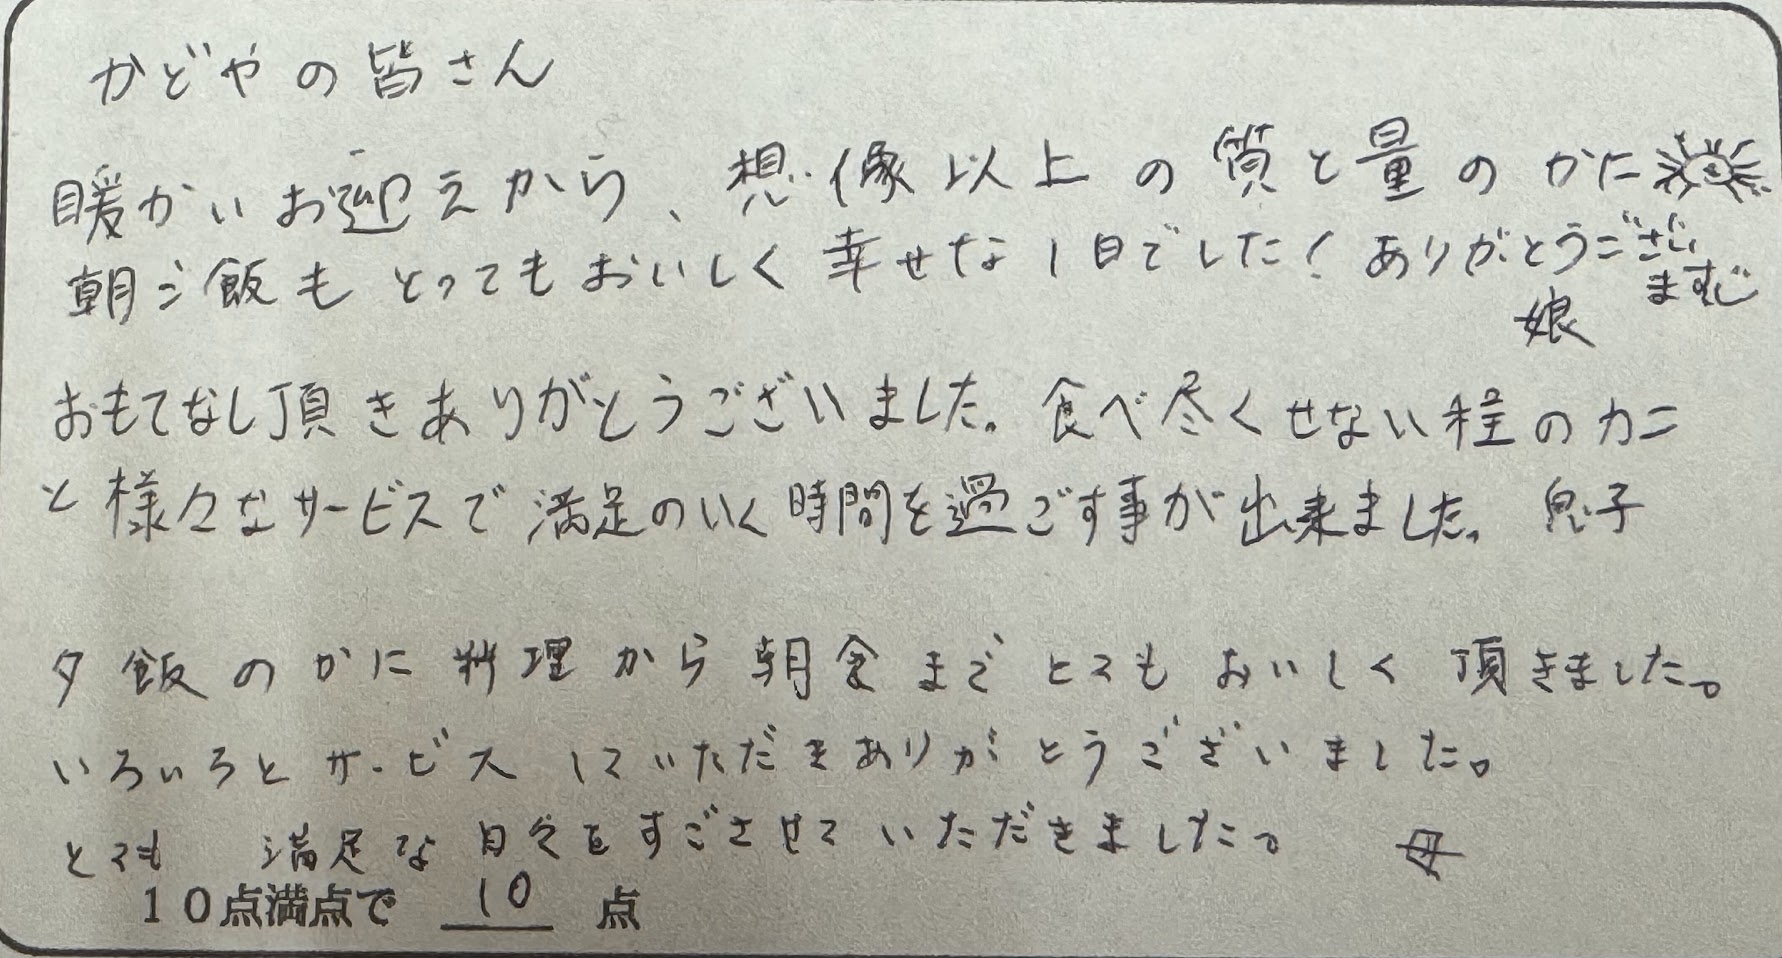 かどやの皆さん
暖かいお迎えから、想像以上の質と量のかに
朝ご飯もとってもおいしく幸せな1日でした！ありがとうござい
ます
娘
おもてなし頂きありがとうございました。食べ尽くせない程のカニ
と様々なサービスで満足のいく時間を過ごす事が出来ました。息子
夕飯のかに料理から朝食までとてもおいしく頂きました。
いろいろとサービスしていただきありがとうございました。
とても満足な日々をすごさせていただきました。母
10点満点で 10 点